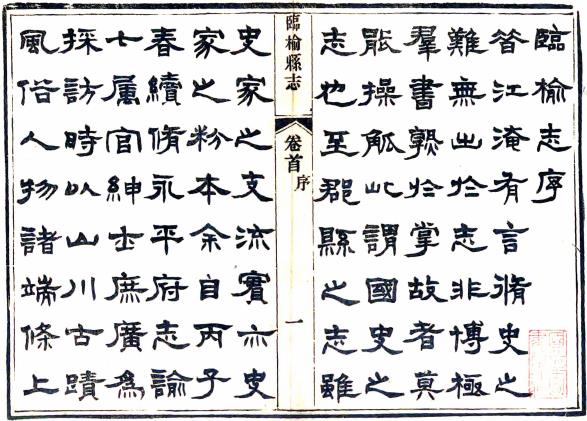 臨榆志序
昔江淹有言脩史之
難無出於志非博極
羣書熟於掌故者莫
能操觚此謂國史之
志也至郡縣之志雖
臨榆縣志
卷首
序
一
史家之支流實亦史
家之粉本余自丙子
春續脩永平府志諭
七屬官紳士庶廣為
採訪時以山川古蹟
風俗人物諸端條上